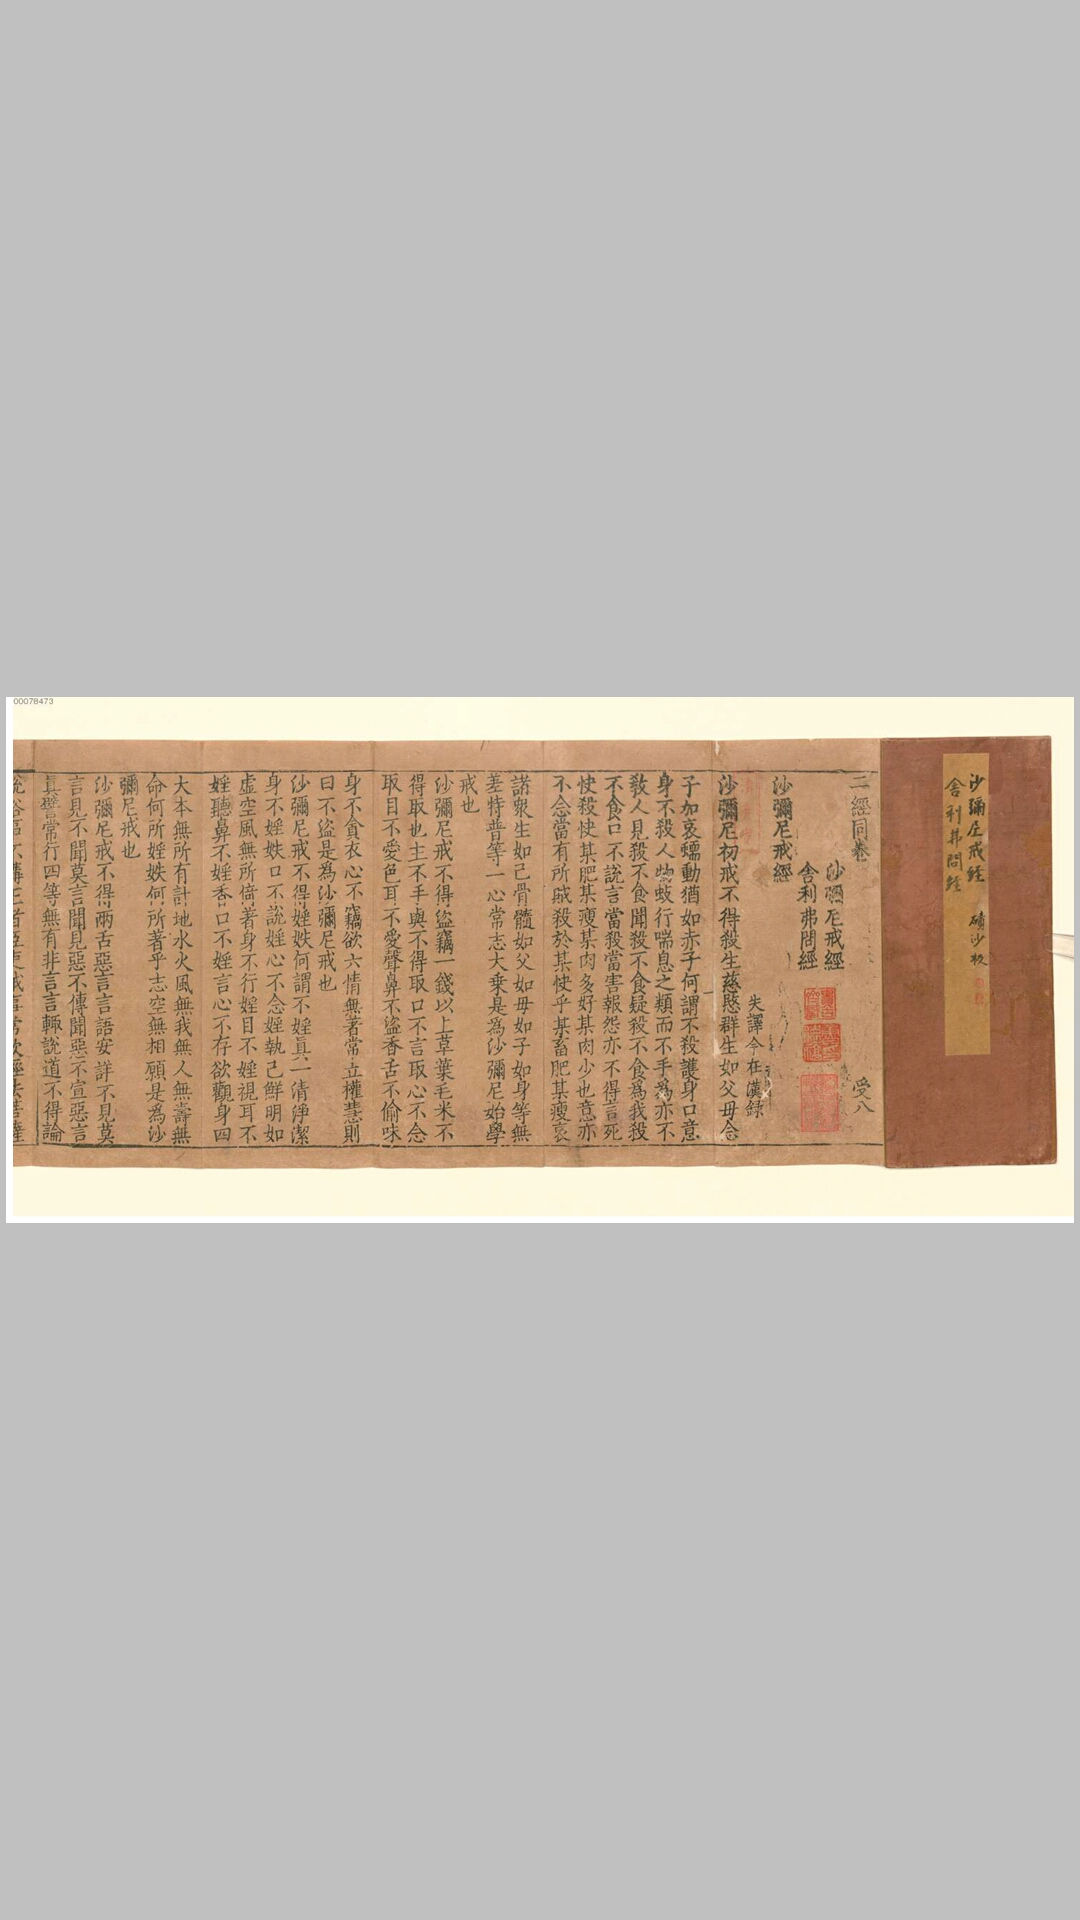 00078473
沙彌尼戒經 磧沙板
舍利弗問經
二經同卷
受八
沙彌尼戒經
舍利弗問經
沙彌尼戒經
失譯今在漢録
沙彌尼初戒不得殺生慈愍群生如父母念
子加哀蠕動猶如赤子何謂不殺護身口意
身不殺人物蚑行喘息之類而不手為亦不
教人見殺不食聞殺不食疑殺不食為我殺
不食口不說言當殺當害報怨亦不得言死
快殺快某肥某瘦某肉多好某肉少也意亦
不念當有所賊殺於某快乎某畜肥某瘦哀
諸衆生如己骨髓如父如母如子如身等無
差特普等一心常志大乗是為沙彌尼始學
戒也
沙彌尼戒不得盜竊一錢以上草葉毛米不
得取也主不手與不得取口不言取心不念
取目不愛色耳不愛聲鼻不盜香舌不偷味
身不貪衣心不竊欲六情無著常立權慧則
曰不盜是為沙彌尼戒也
沙彌尼戒不得婬妷何謂不婬真一清淨潔
身不婬妷口不說婬心不念婬執己鮮明如
虛空風無所倚著身不行婬目不婬視耳不
婬聽鼻不婬香口不婬言心不存欲觀身四
大本無所有計地水火風無我無人無壽無
命何所婬妷何所著乎志空無相願是為沙
彌尼戒也
沙彌尼戒不得兩舌惡言言語安詳不見莫
言見不聞莫言聞見惡不傳聞惡不宣惡言
直譬常行四等無有非言言輒說道不得論